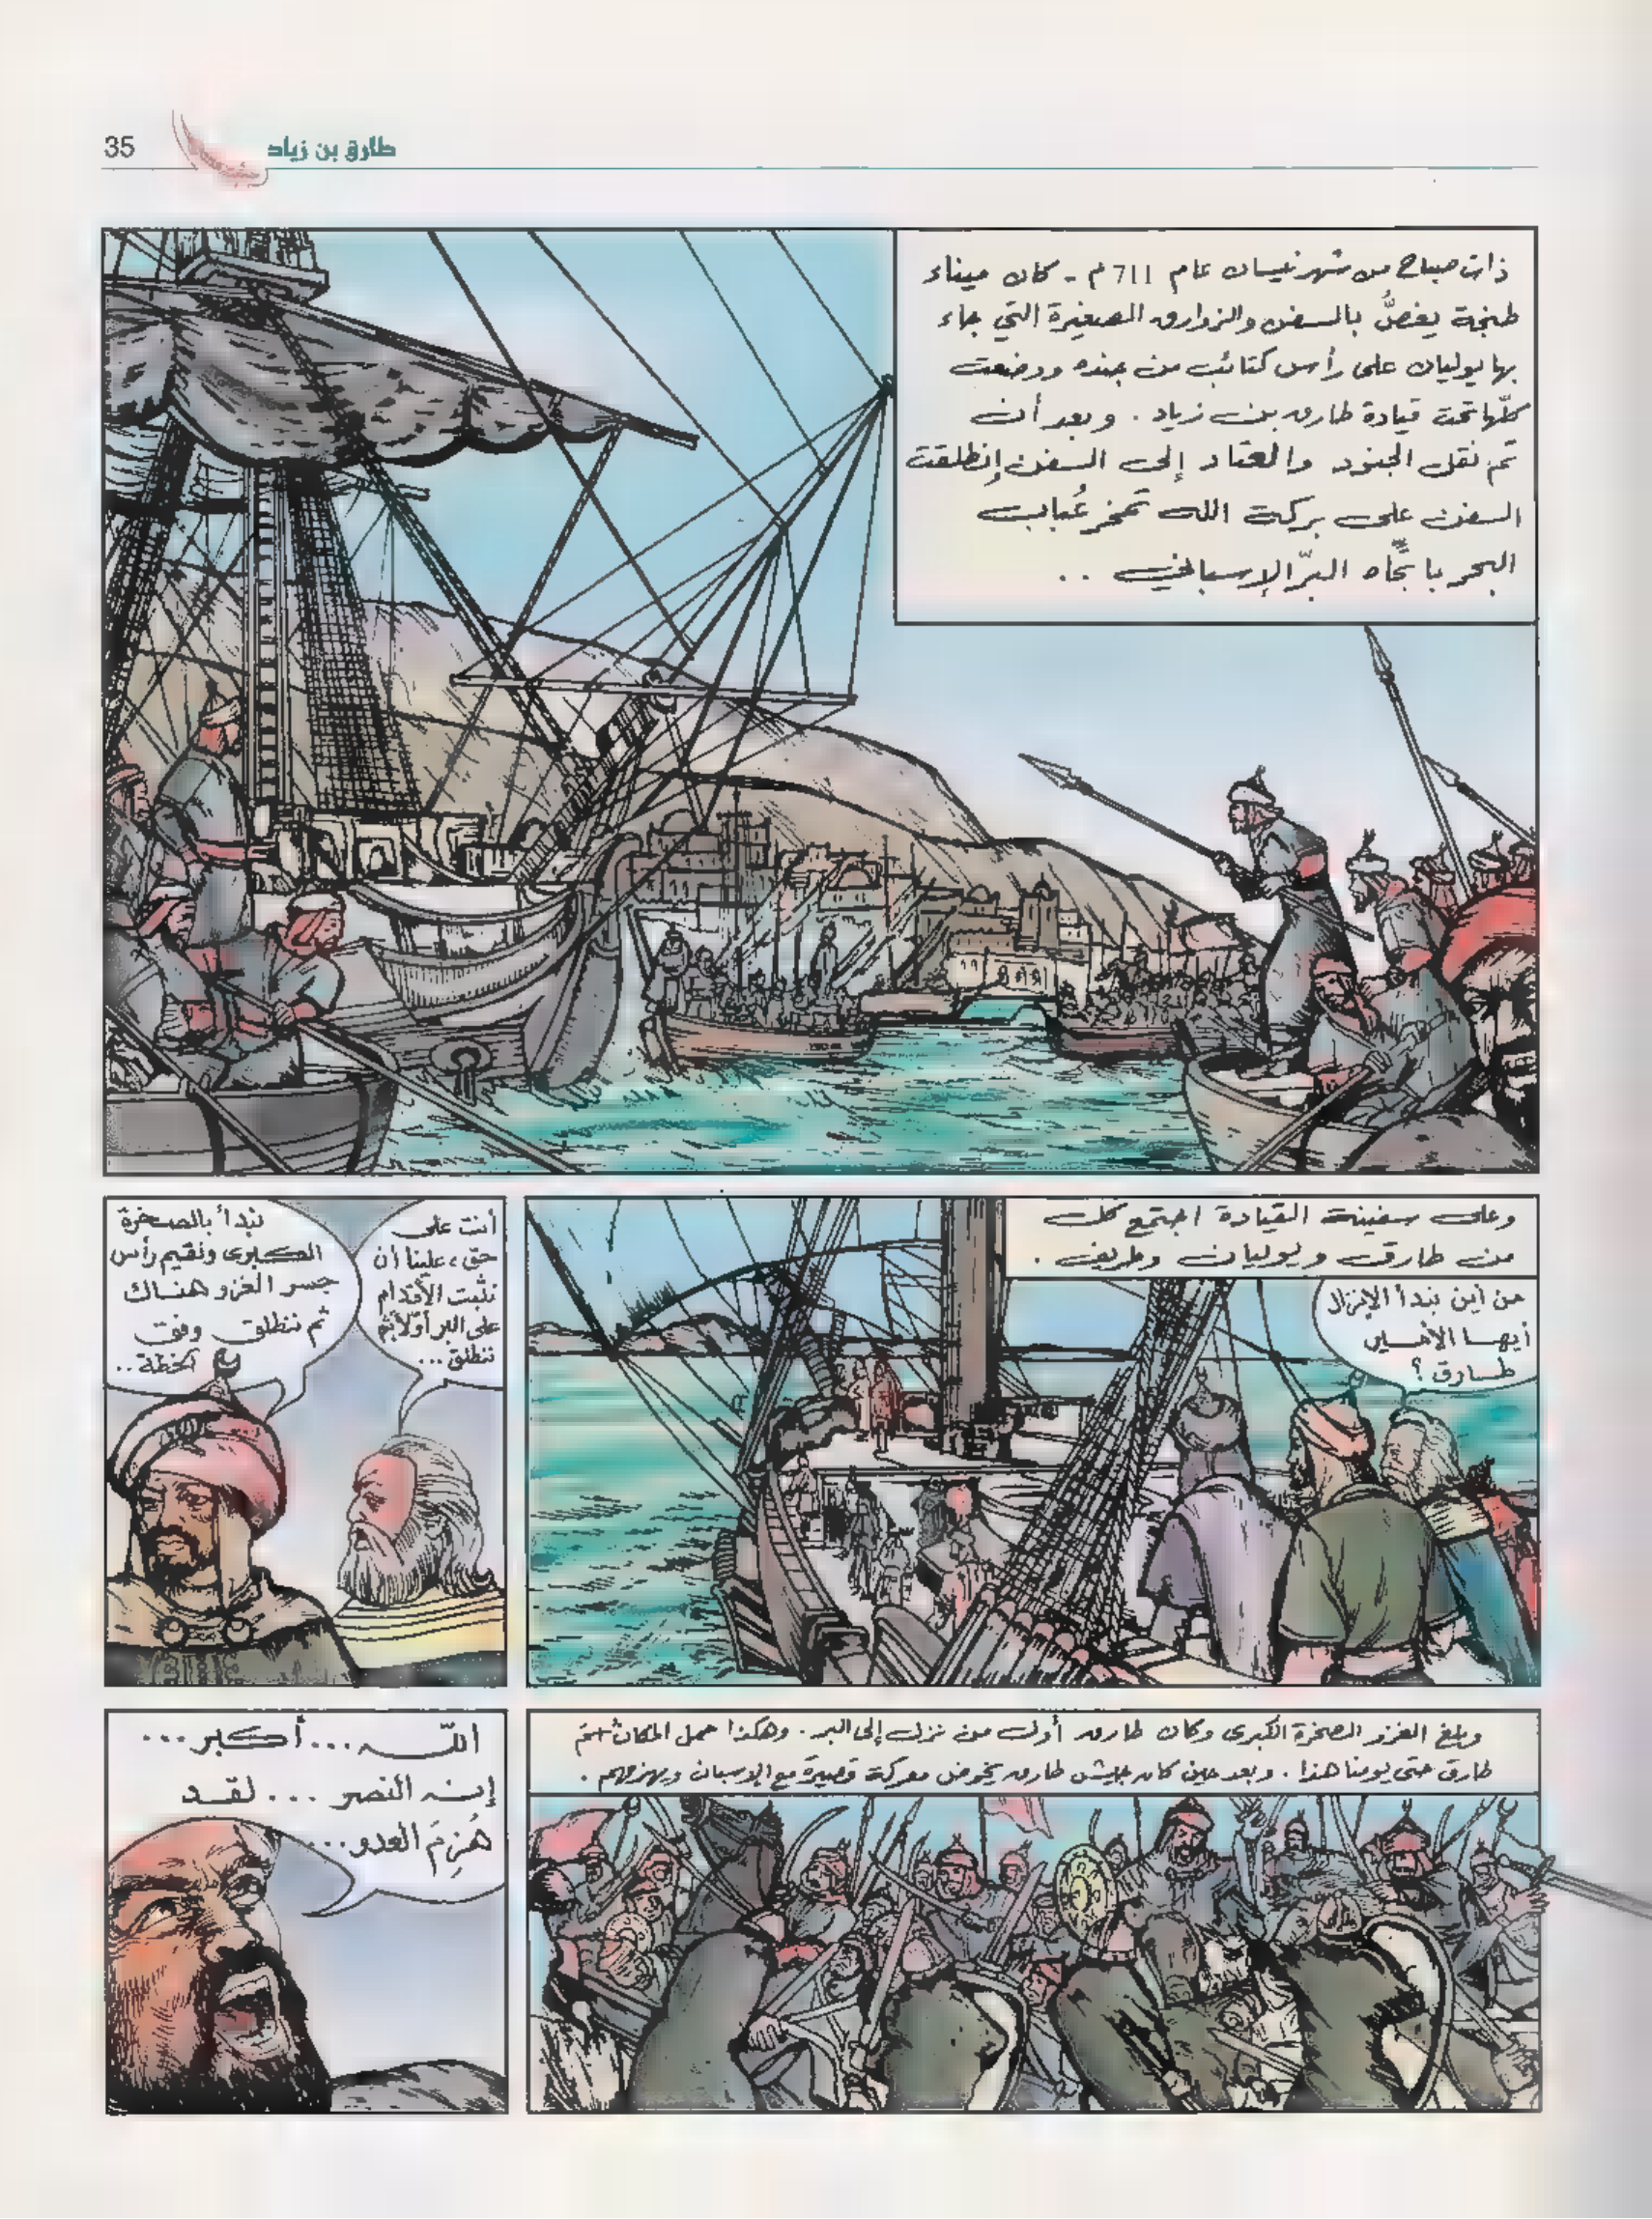 35
طارق بن زياد
ذات صباح من شهر نيسان عام 711 م - كان ميناء
طنجة يغصُّ بالسفن والزوارق الصغيرة التي جاء
بها يوليان على رأس كتائب من جنده ووضعت
كلّها تحت قيادة طارق بن زياد . وبعد أن
تم نقل الجنود والعتاد إلى السفن إنطلقت
السفن على بركة الله تمخر عُباب
البحر باتّجاه البرّ الإسباني ..
وعلى سفينة القيادة اجتمع كل
من طارق ويوليان وطريف .
من أين نبدأ الإنزال
أيها الأمير
طارق ؟
أنت على
حق، علينا أن
نثبت الأقدام
على البر أوّلاً ثم
ننطلق ...
نبدأ بالصخرة
الكبرى ونقيم رأس
جسر الغزو هناك
ثم ننطلق وفق
الخطة ..
وبلغ الغزو الصخرة الكبرى وكان طارق أول من نزل إلى البر . وهكذا حمل المكان اسم
طارق حتى يومنا هذا . وبعد حين كان جيش طارق يخوض معركة قصيرة مع الإسبان ويهزمهم .
اللّه ... أكبر ...
إنه النصر ... لقد
هُزِمَ العدو ...